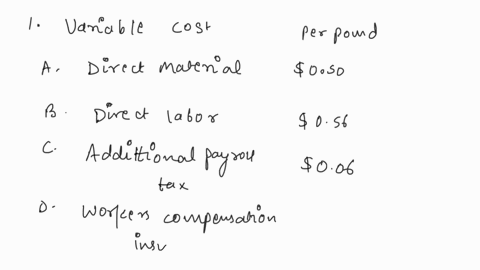 1. Variable cost per pound
A. Direct Material $0.50
B. Direct labor $0.56
C. Addittional payroll $0.06
tax
D. Workers compensation
insu